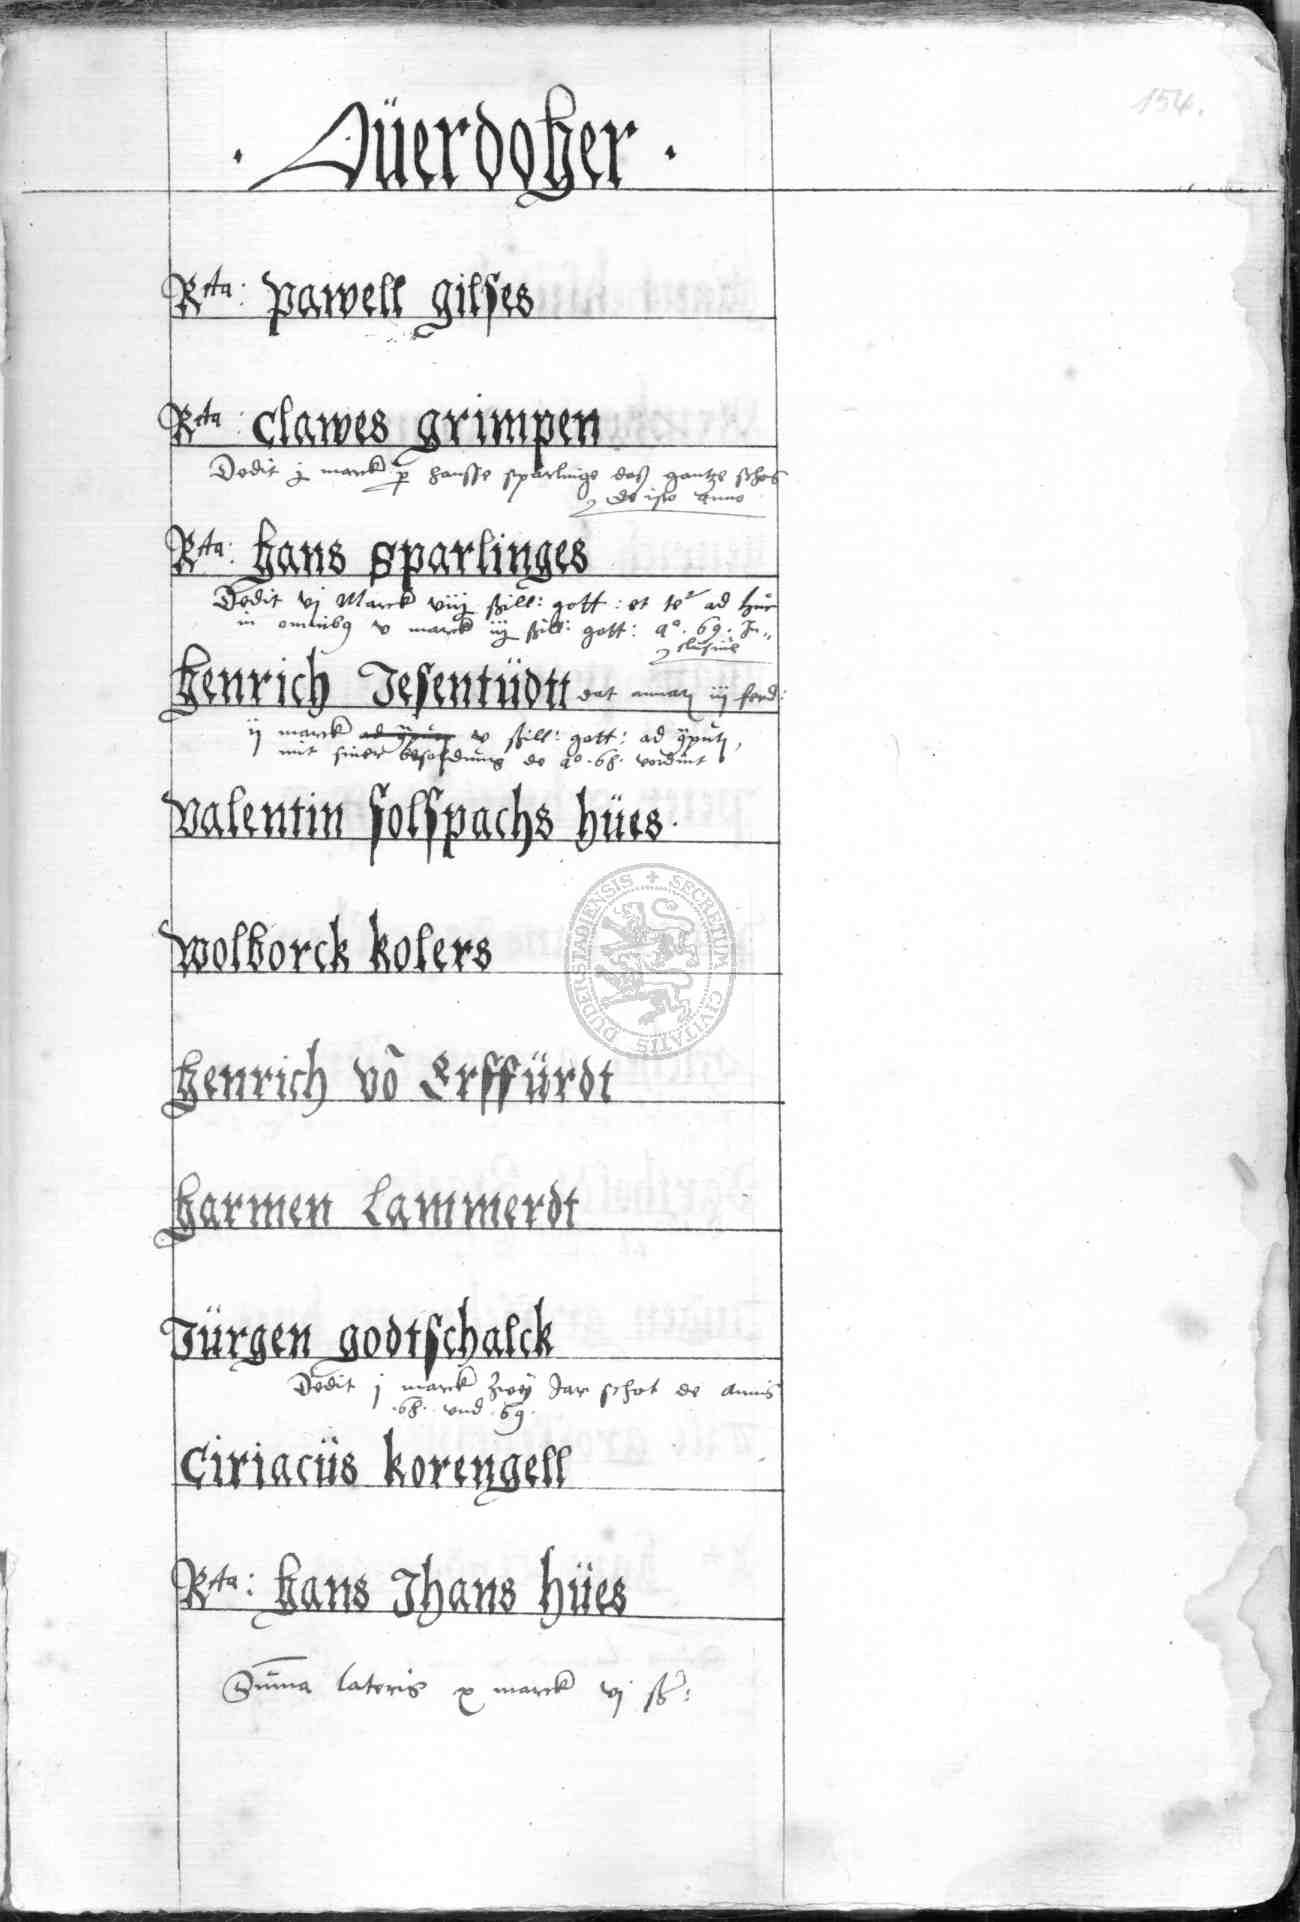 154.
· Aüerdoher ·
Rta: pawell gilses
Rta: Clawes grimpen
Dedit j marck p hansse sparlinge das gantze schos
de isto anno
Rta: hans sparlinges
Dedit vj Marck viij ßill: gott: et te ad huc
in omnibus v marck iij ßill: gott: ao. 69. In-
clusiue
henrich Jesentüdtt dat annatim iij ferd:
ij marck ad v ßill: gott: ad
mit siner besoldung de ao .68. vordint
Valentin solspachs hües.
Wolborck kolers
henrich võ Erffürdt
harmen Lammerdt
Jürgen godtschalck
Dedit j marck zwey Jar schot de annis
.68. vnd .69.
Ciriacüs korengell
Rta: hans Jhans hües
Suma lateris x marck vj ß:
SECRETUM CIVITATIS DUDERSTADIENSIS